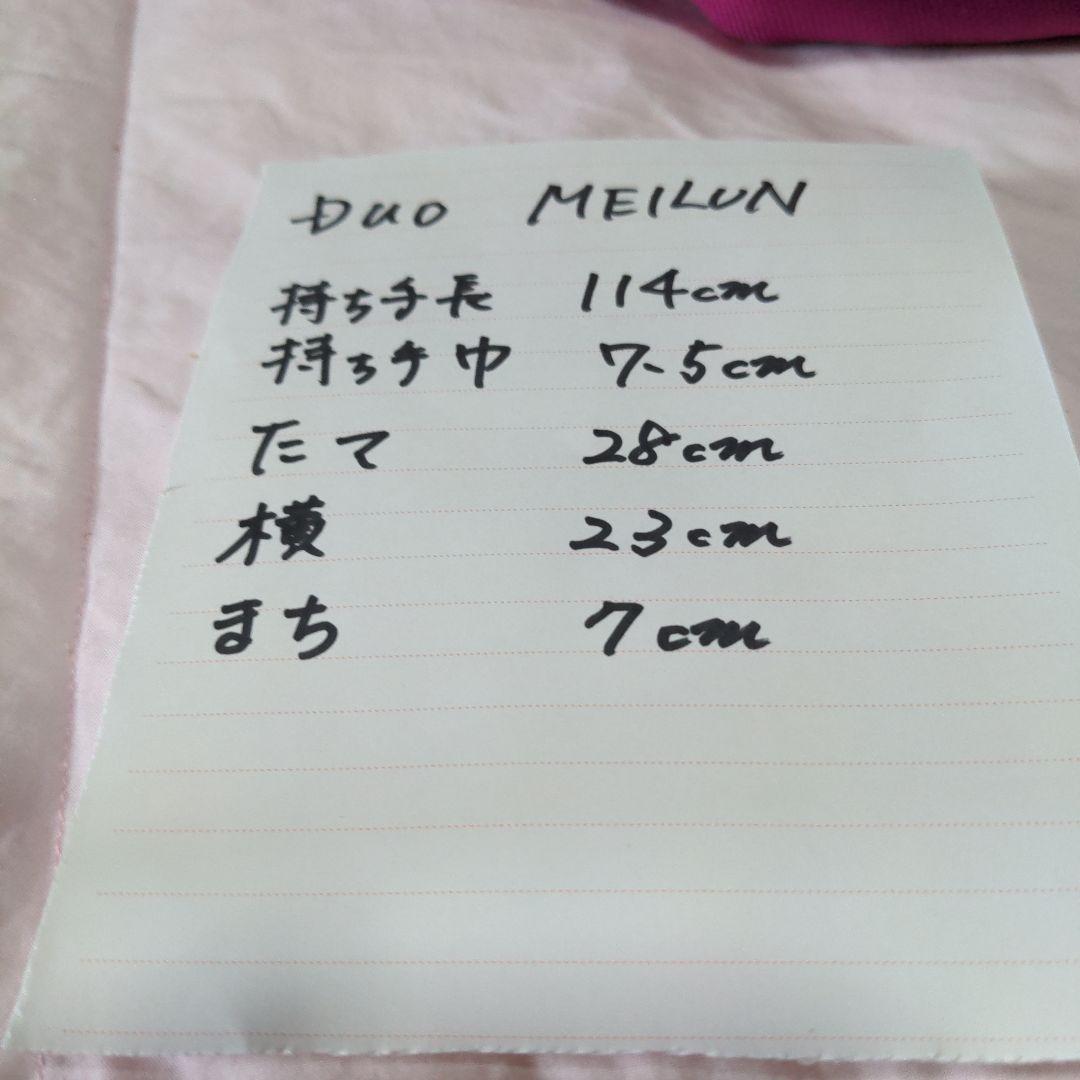 DUO MEILUN
持ち手長 114cm
持ち手巾 7.5cm
たて 28cm
横 23cm
まち 7cm